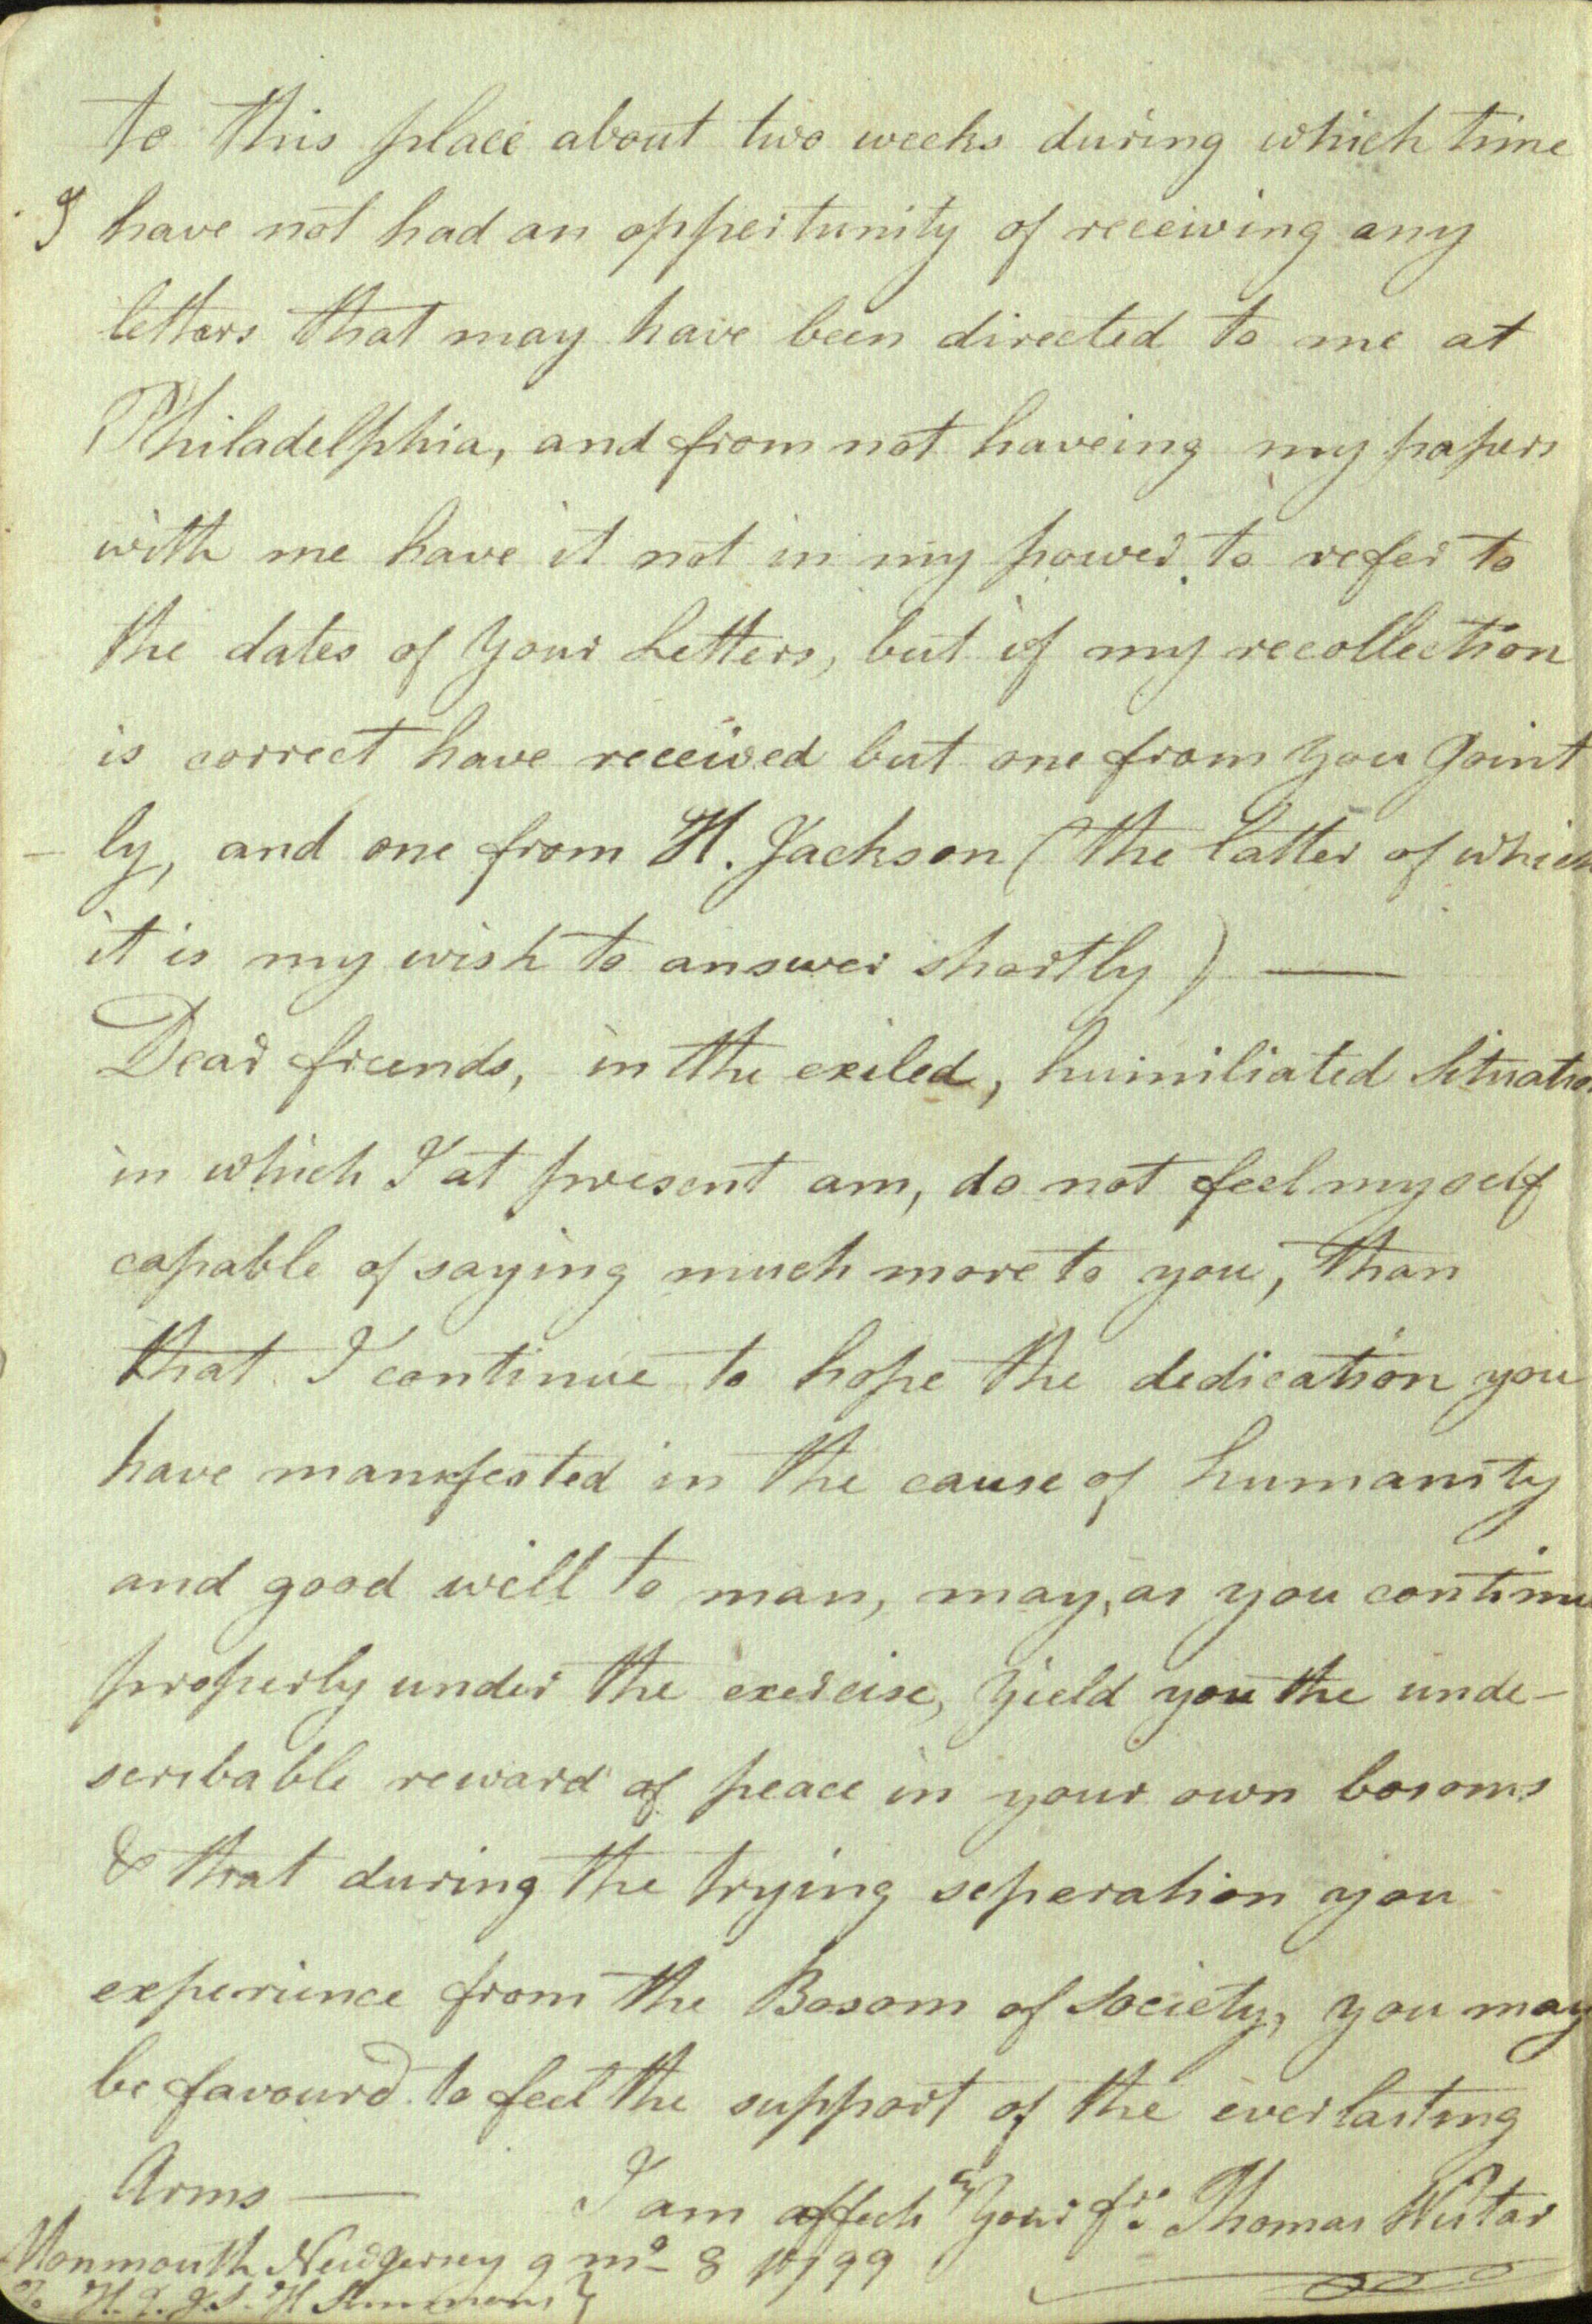 to this place about two weeks during which time
I have not had an oppertunity of receiving any
letters that may have been directed to me at
Philadelphia, and from not haveing my papers
with me have it not in my power to refer to
the dates of your Letters, but if my recollection
is correct have received but one from you Joint
- ly, and one from H. Jackson (the latter of which
it is my wish to answer shortly) —
Dear friends, in the exiled, humiliated Situation
in which I at present am, do not feel myself
capable of saying much more to you, than
that I continue to hope the dedication you
have manifested in the cause of humanity
and good will to man, may, as you continue
properly under the exercise, yield you the unde-
scribable reward of peace in your own bosoms
& that during the trying seperation you
experience from the Bosom of Society, you may
be favourd to feel the support of the everlasting
Arms — I am affectly your frd. Thomas Wistar
Monmouth New Jersey 9 mo 8 1799
To H. J. J. S. H Simmons